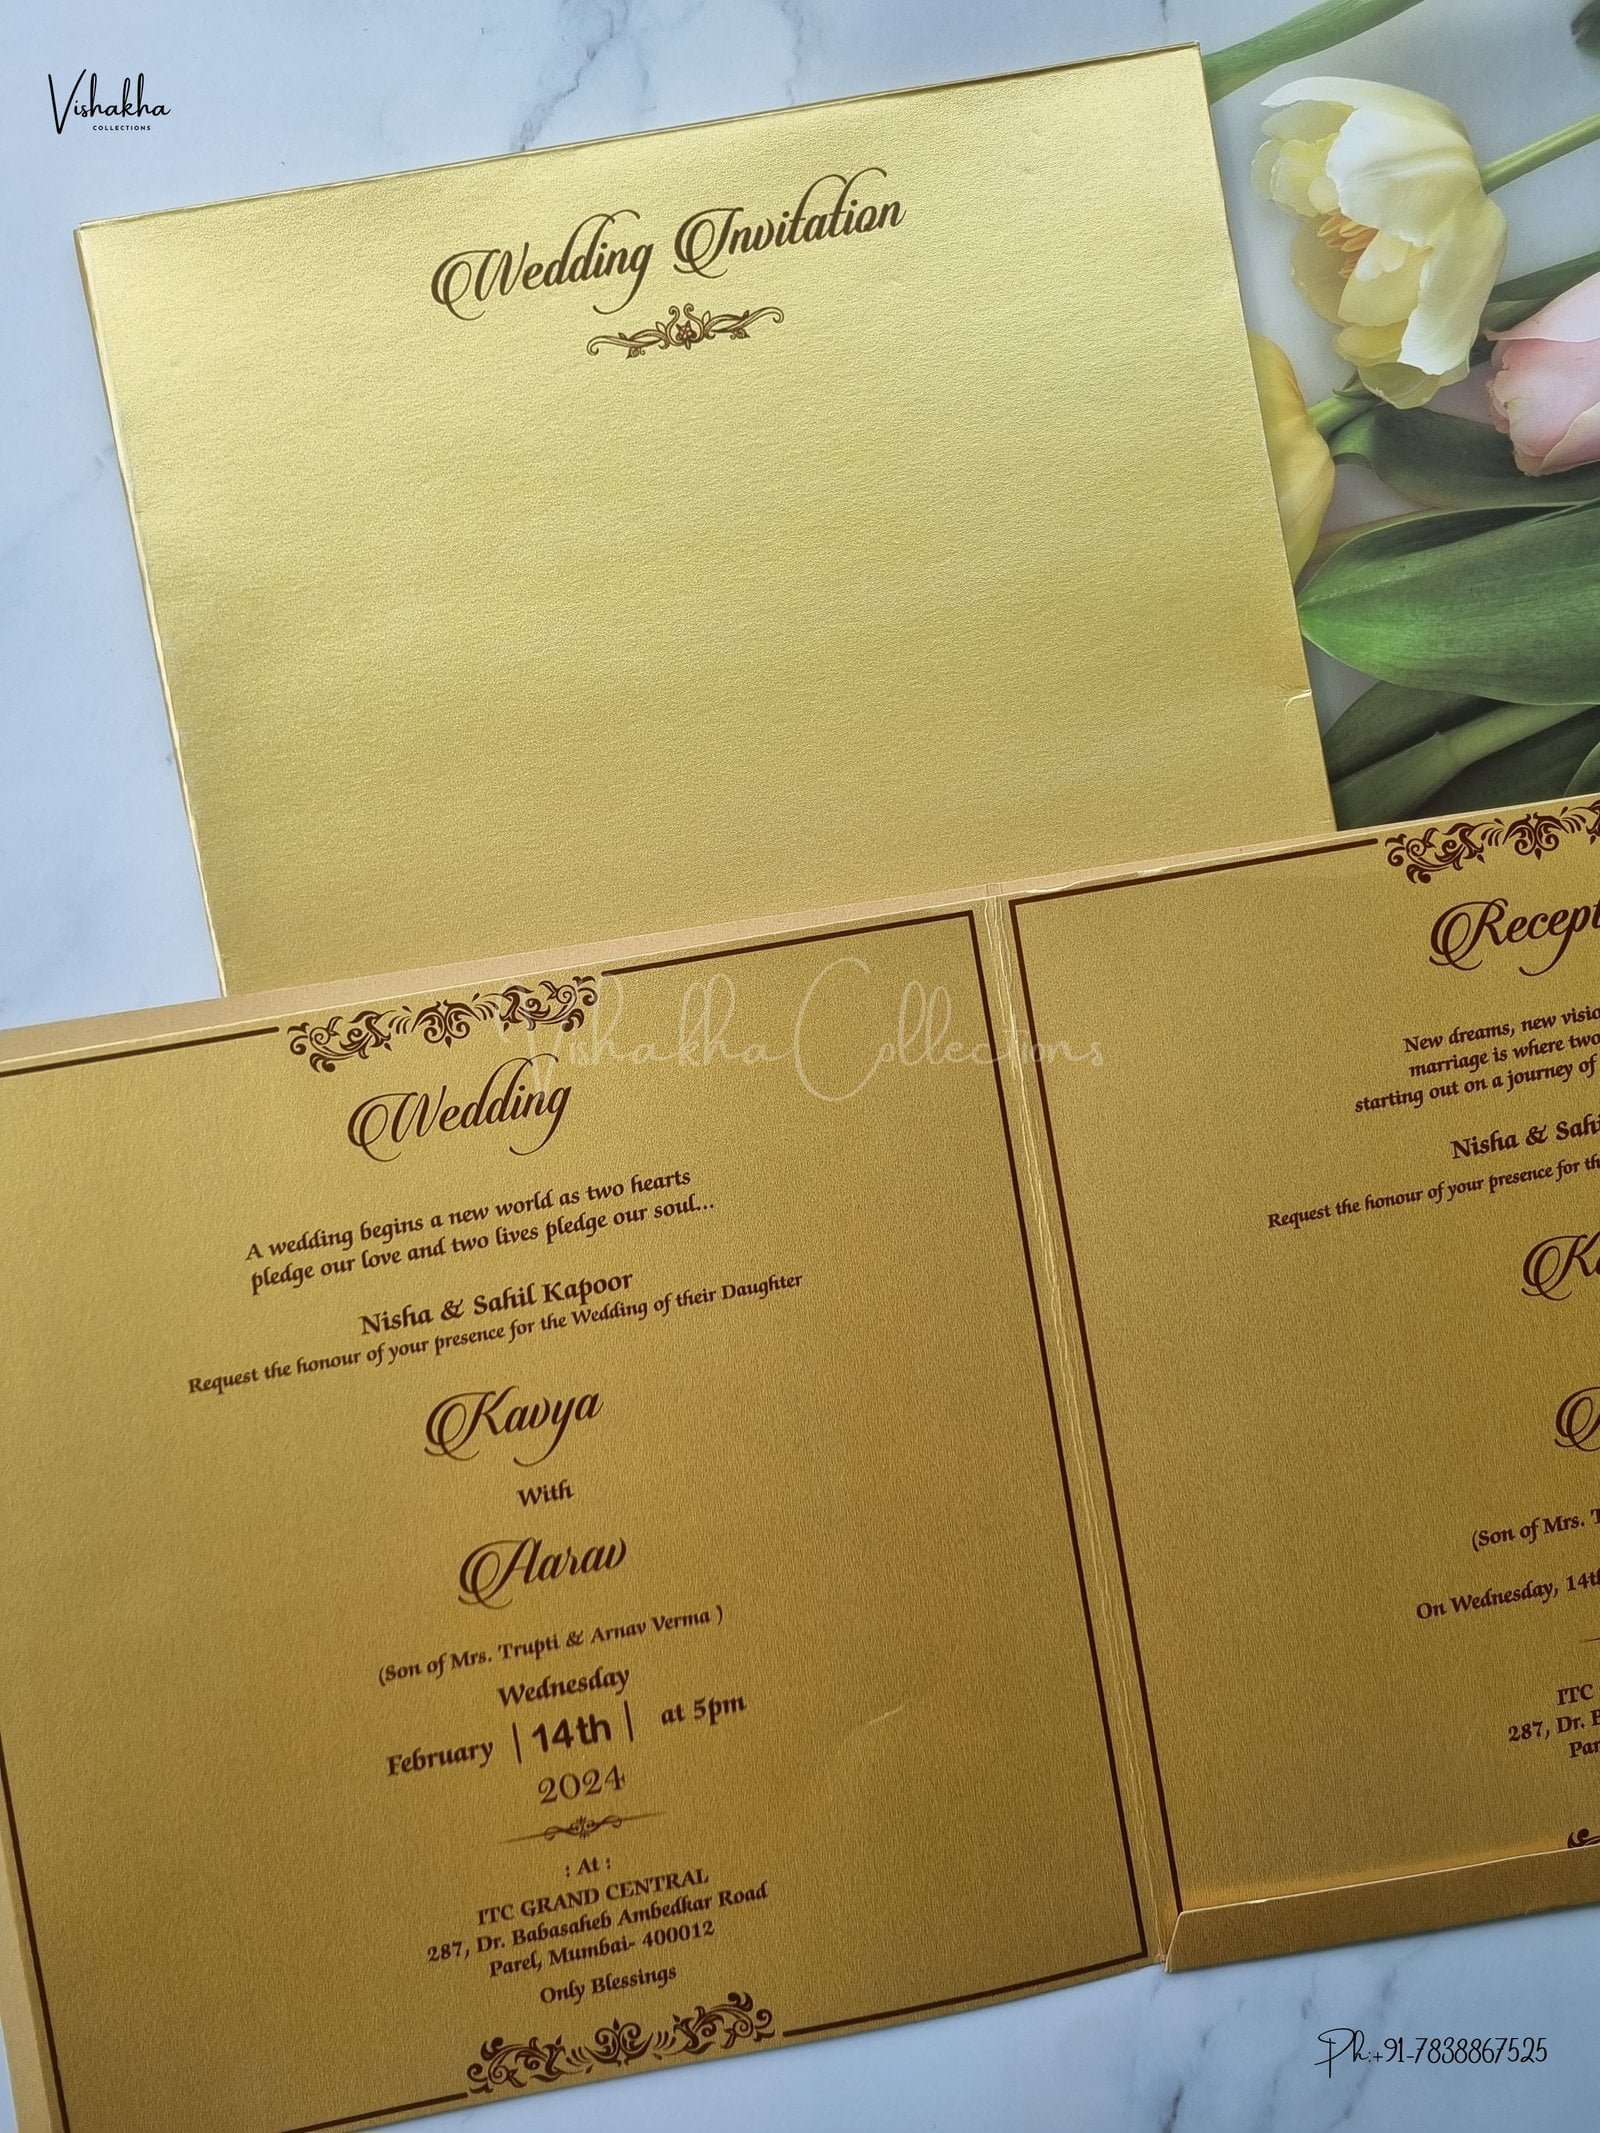 Vishakha
COLLECTIONS
Wedding Invitation
Vishakha Collections
Wedding
A wedding begins a new world as two hearts
pledge our love and two lives pledge our soul...
Nisha & Sahil Kapoor
Request the honour of your presence for the Wedding of their Daughter
Kavya
With
Aarav
(Son of Mrs. Trupti & Arnav Verma )
Wednesday
February | 14th | at 5pm
2024
: At :
ITC GRAND CENTRAL
287, Dr. Babasaheb Ambedkar Road
Parel, Mumbai- 400012
Only Blessings
New dreams, new
marriage is where two
starting out on a journey of
Nisha &
Request the honour of your presence for
(Son of Mrs.
On Wednesday,
ITC
287, Dr.
Ph:+91-7838867525